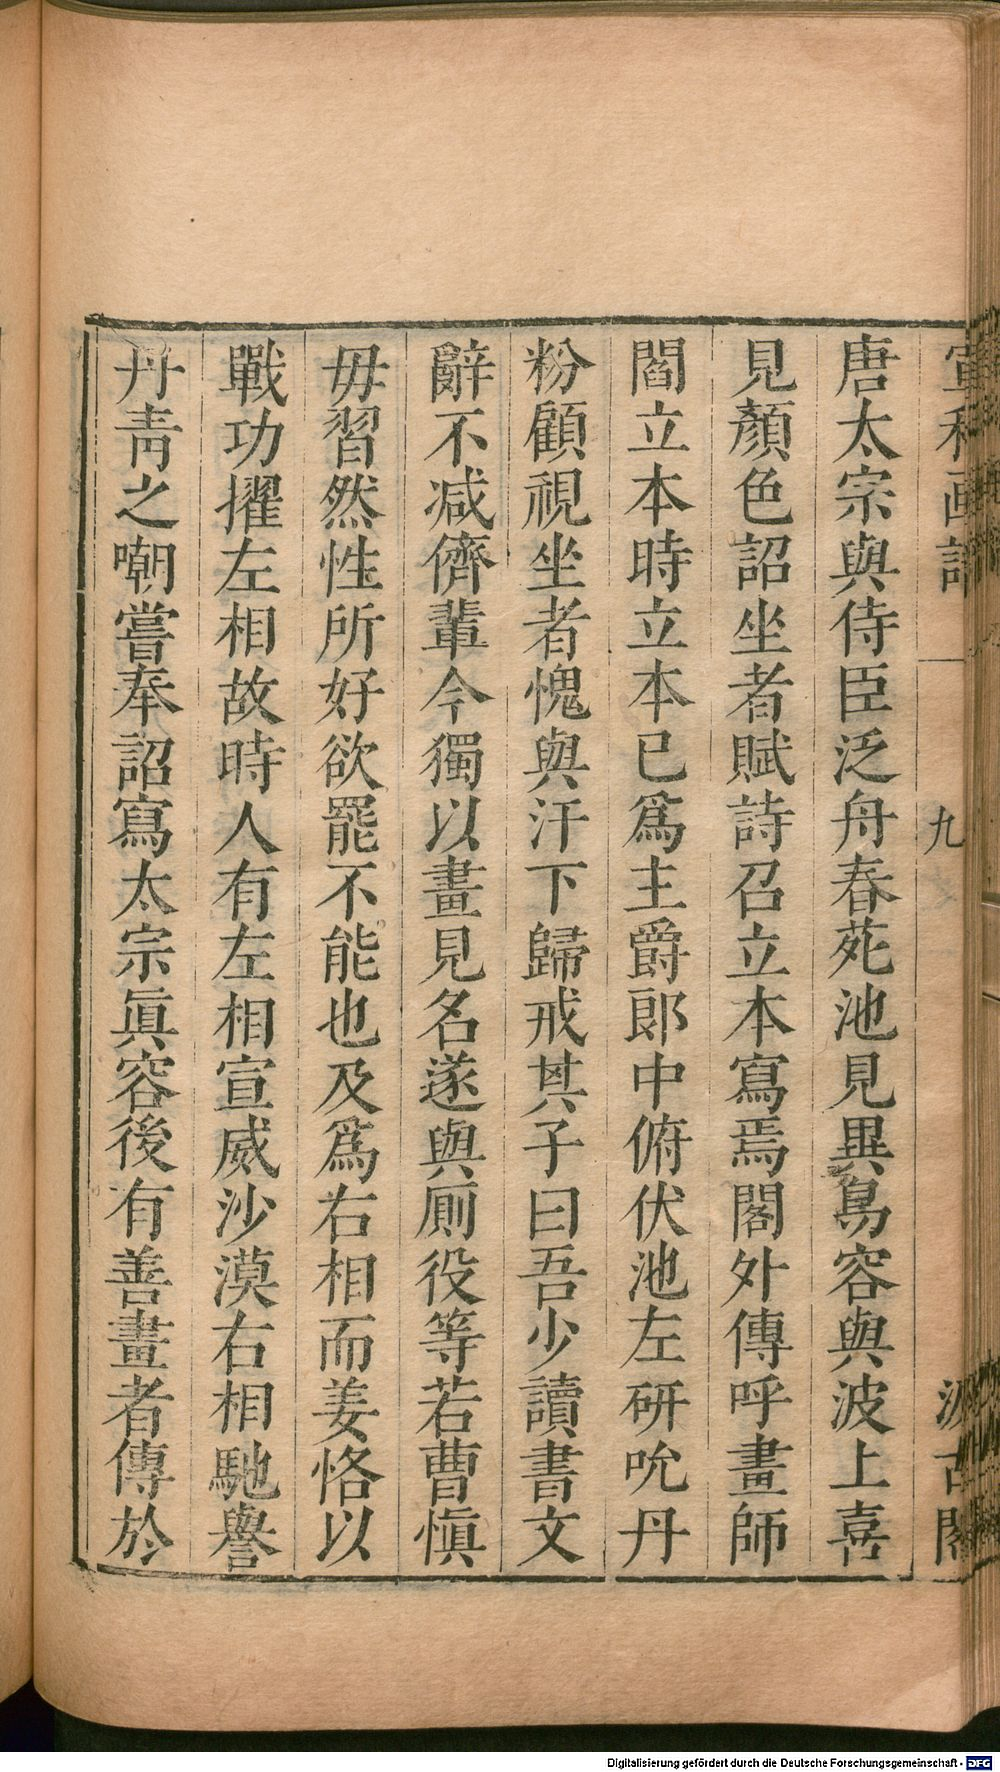 宣和画譜 九 汲古閣
唐太宗與侍臣泛舟春苑池見異鳥容與波上喜
見顏色詔坐者賦詩召立本寫焉閣外傳呼畫師
閻立本時立本已爲主爵郎中俯伏池左研吮丹
粉顧視坐者愧與汗下歸戒其子曰吾少讀書文
辭不减儕輩今獨以畫見名遂與厠役等若曹愼
毋習然性所好欲罷不能也及爲右相而姜恪以
戰功擢左相故時人有左相宣威沙漠右相馳譽
丹靑之嘲嘗奉詔寫太宗眞容後有善畫者傳於
Digitalisierung gefördert durch die Deutsche Forschungsgemeinschaft - DFG